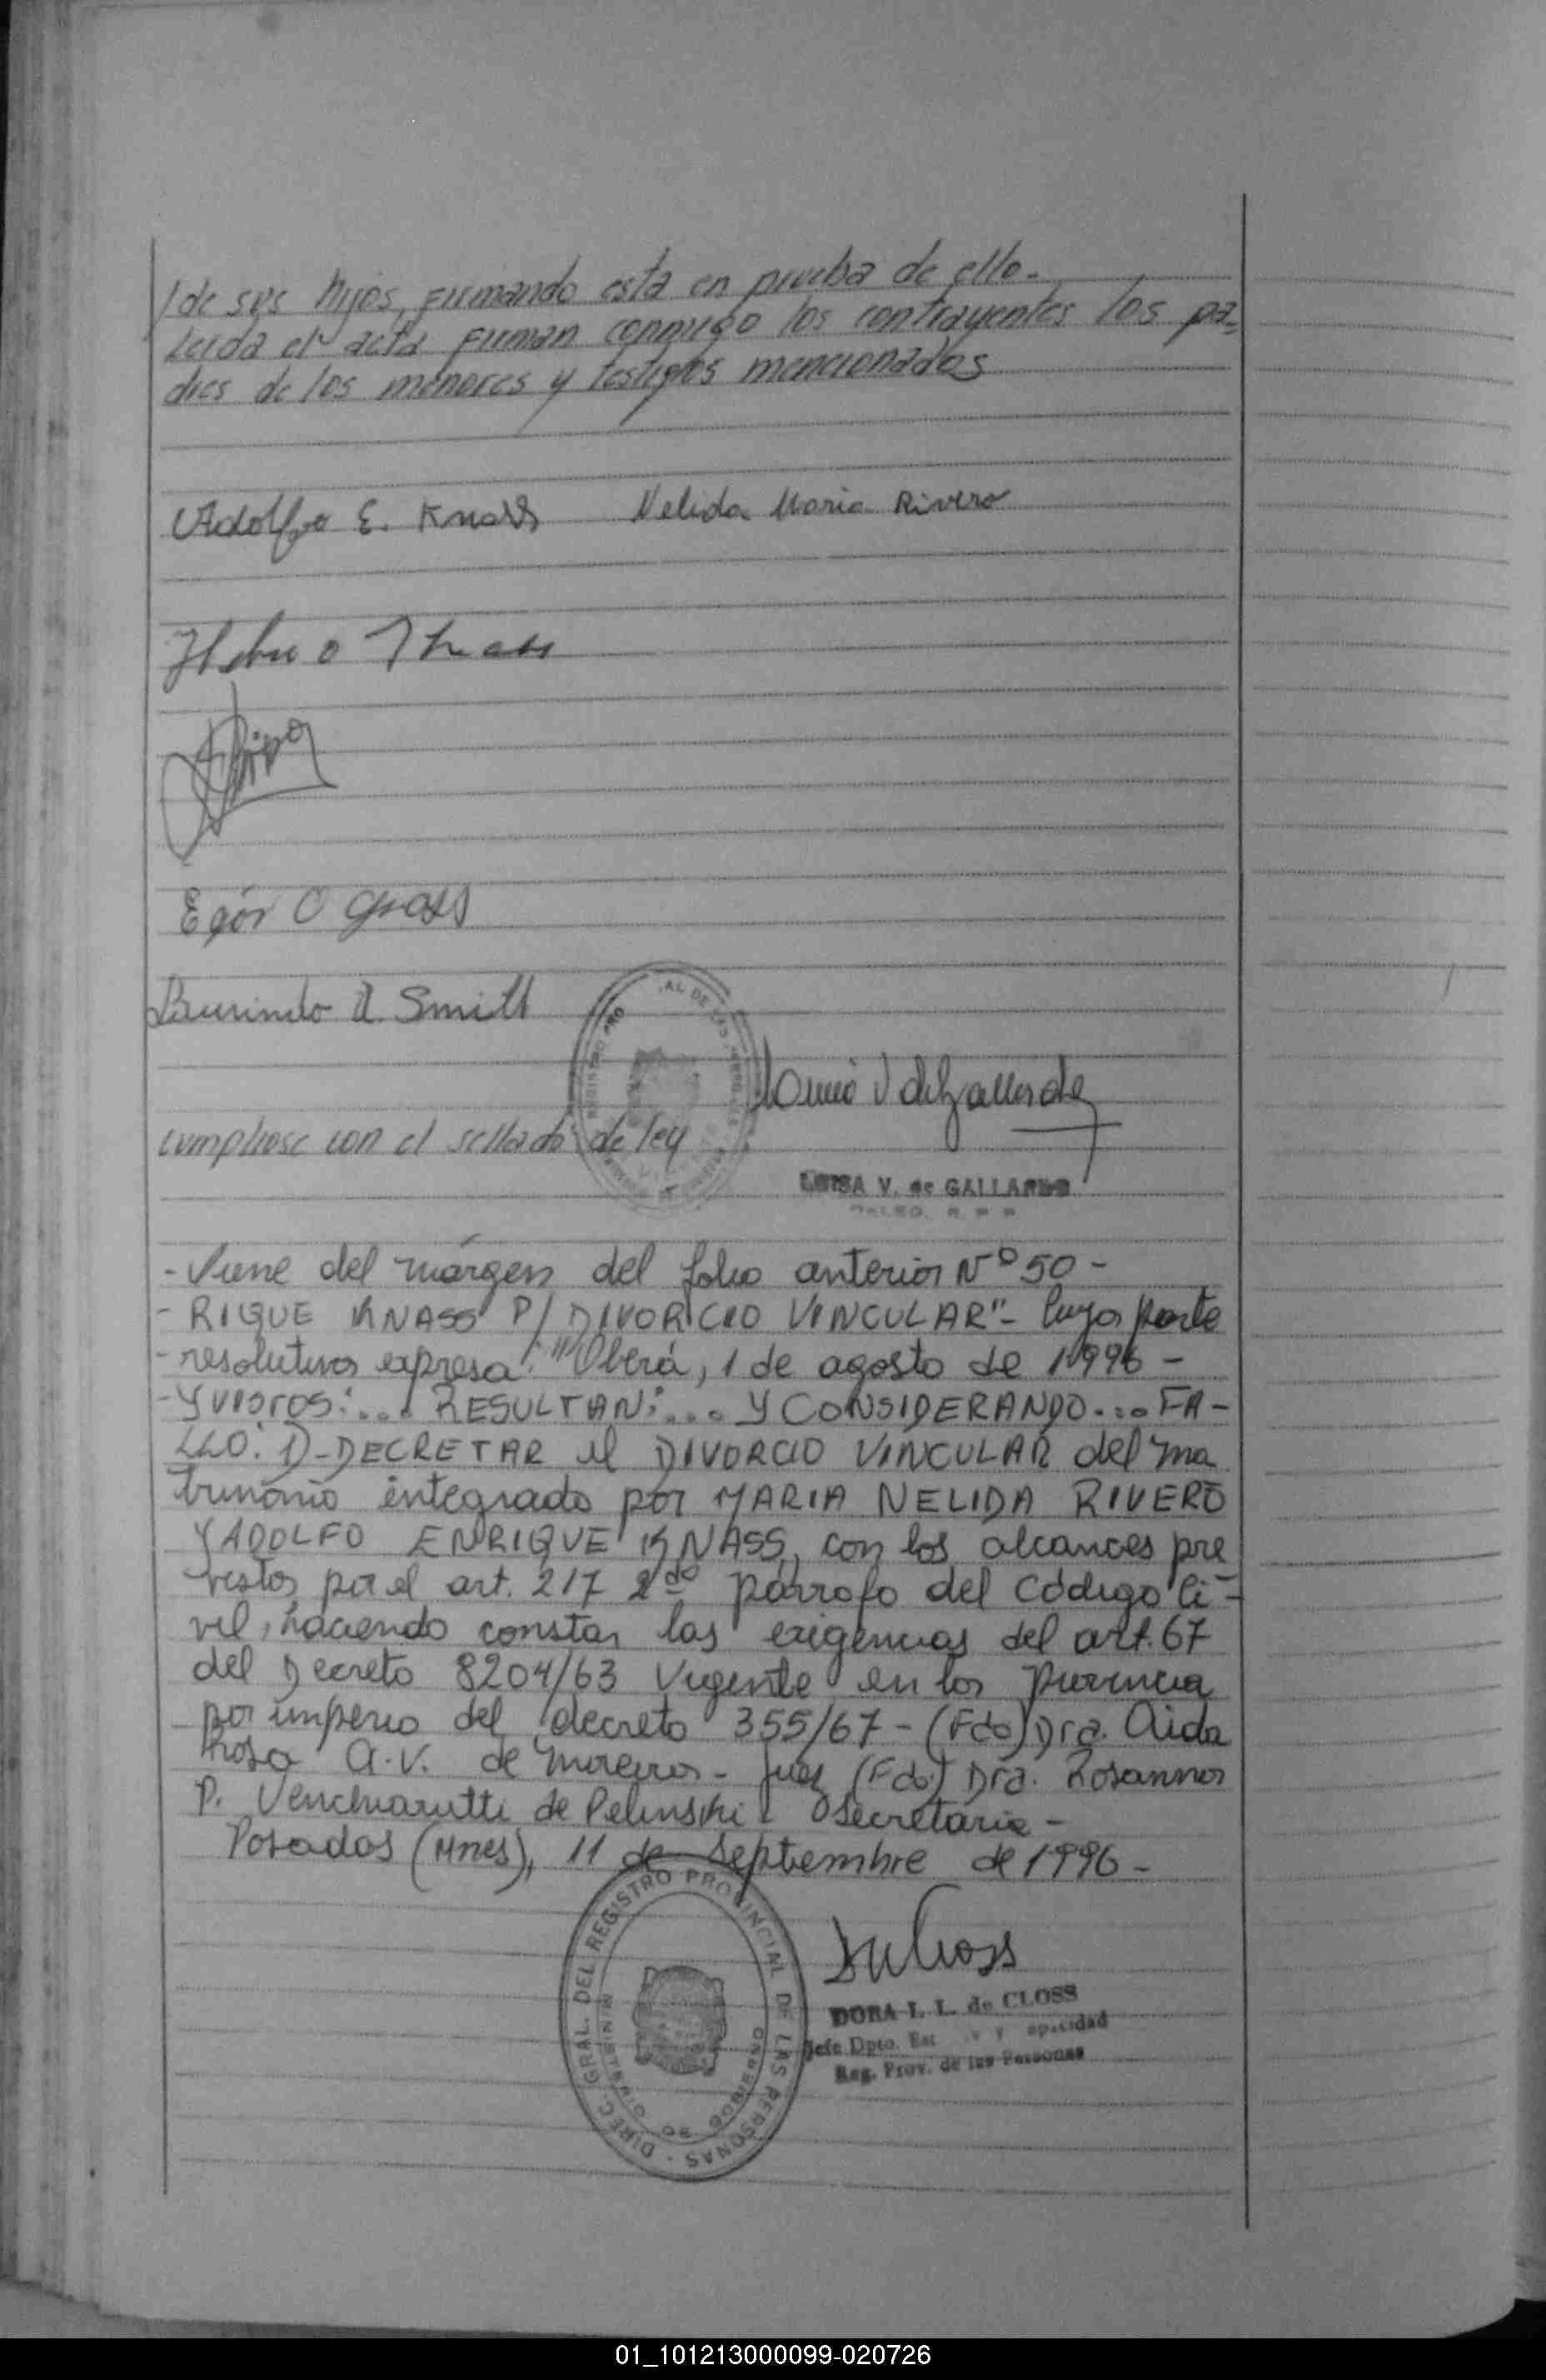 /de sus hijos, firmando esta en prueba de ello.-
Leida el acta firman conmigo los contrayentes los pa-
dres de los menores y testigos mencionados
Adolfo E. Knass Nelida Maria Rivero
Egon O Gross
Laurindo A. Smitt
cumpliose con el sellado de ley
LUISA V. de GALLARDO
- Viene del márgen del folio anterior Nº 50 -
- RIQUE KNASS P/ DIVORCIO VINCULAR"- Cuya parte
- resolutiva expresa: "Oberá, 1 de agosto de 1996 -
- Y VISTOS:... RESULTAN:... Y CONSIDERANDO... FA-
LLO: 1)- DECRETAR el DIVORCIO VINCULAR del ma
trimonio integrado por MARIA NELIDA RIVERO
Y ADOLFO ENRIQUE KNASS, con los alcances pre
vistos por el art. 217 2do párrafo del Código Ci-
vil, haciendo constar las exigencias del art. 67
del Decreto 8204/63 Vigente en la Provincia
por imperio del decreto 355/67 - (Fdo) Dra. Aida
Rosa A.V. de Moreira - Juez (Fdo) Dra. Rosanna
P. Venchiarutti de Pelinski - Secretaria -
Posadas (Mnes), 11 de Septiembre de 1996 -
DIREC. GRAL. DEL REGISTRO PROVINCIAL DE LAS PERSONAS
MINISTERIO DE GOBIERNO
DORA I. L. de CLOSS
Jefe Dpto. Est
Reg. Prov. de las Personas
01_101213000099-020726